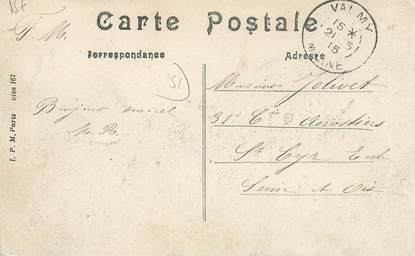 Carte Postale
Correspondance
Adresse
F. M.
VALMY
15 *
21 5
15
MARNE
51
Bonjour amical
M. R.
Monsieur Jolivet
31e Cie D Aérostiers
St Cyr Ecole
Seine et Oise
I. P. M, Paris visa 167